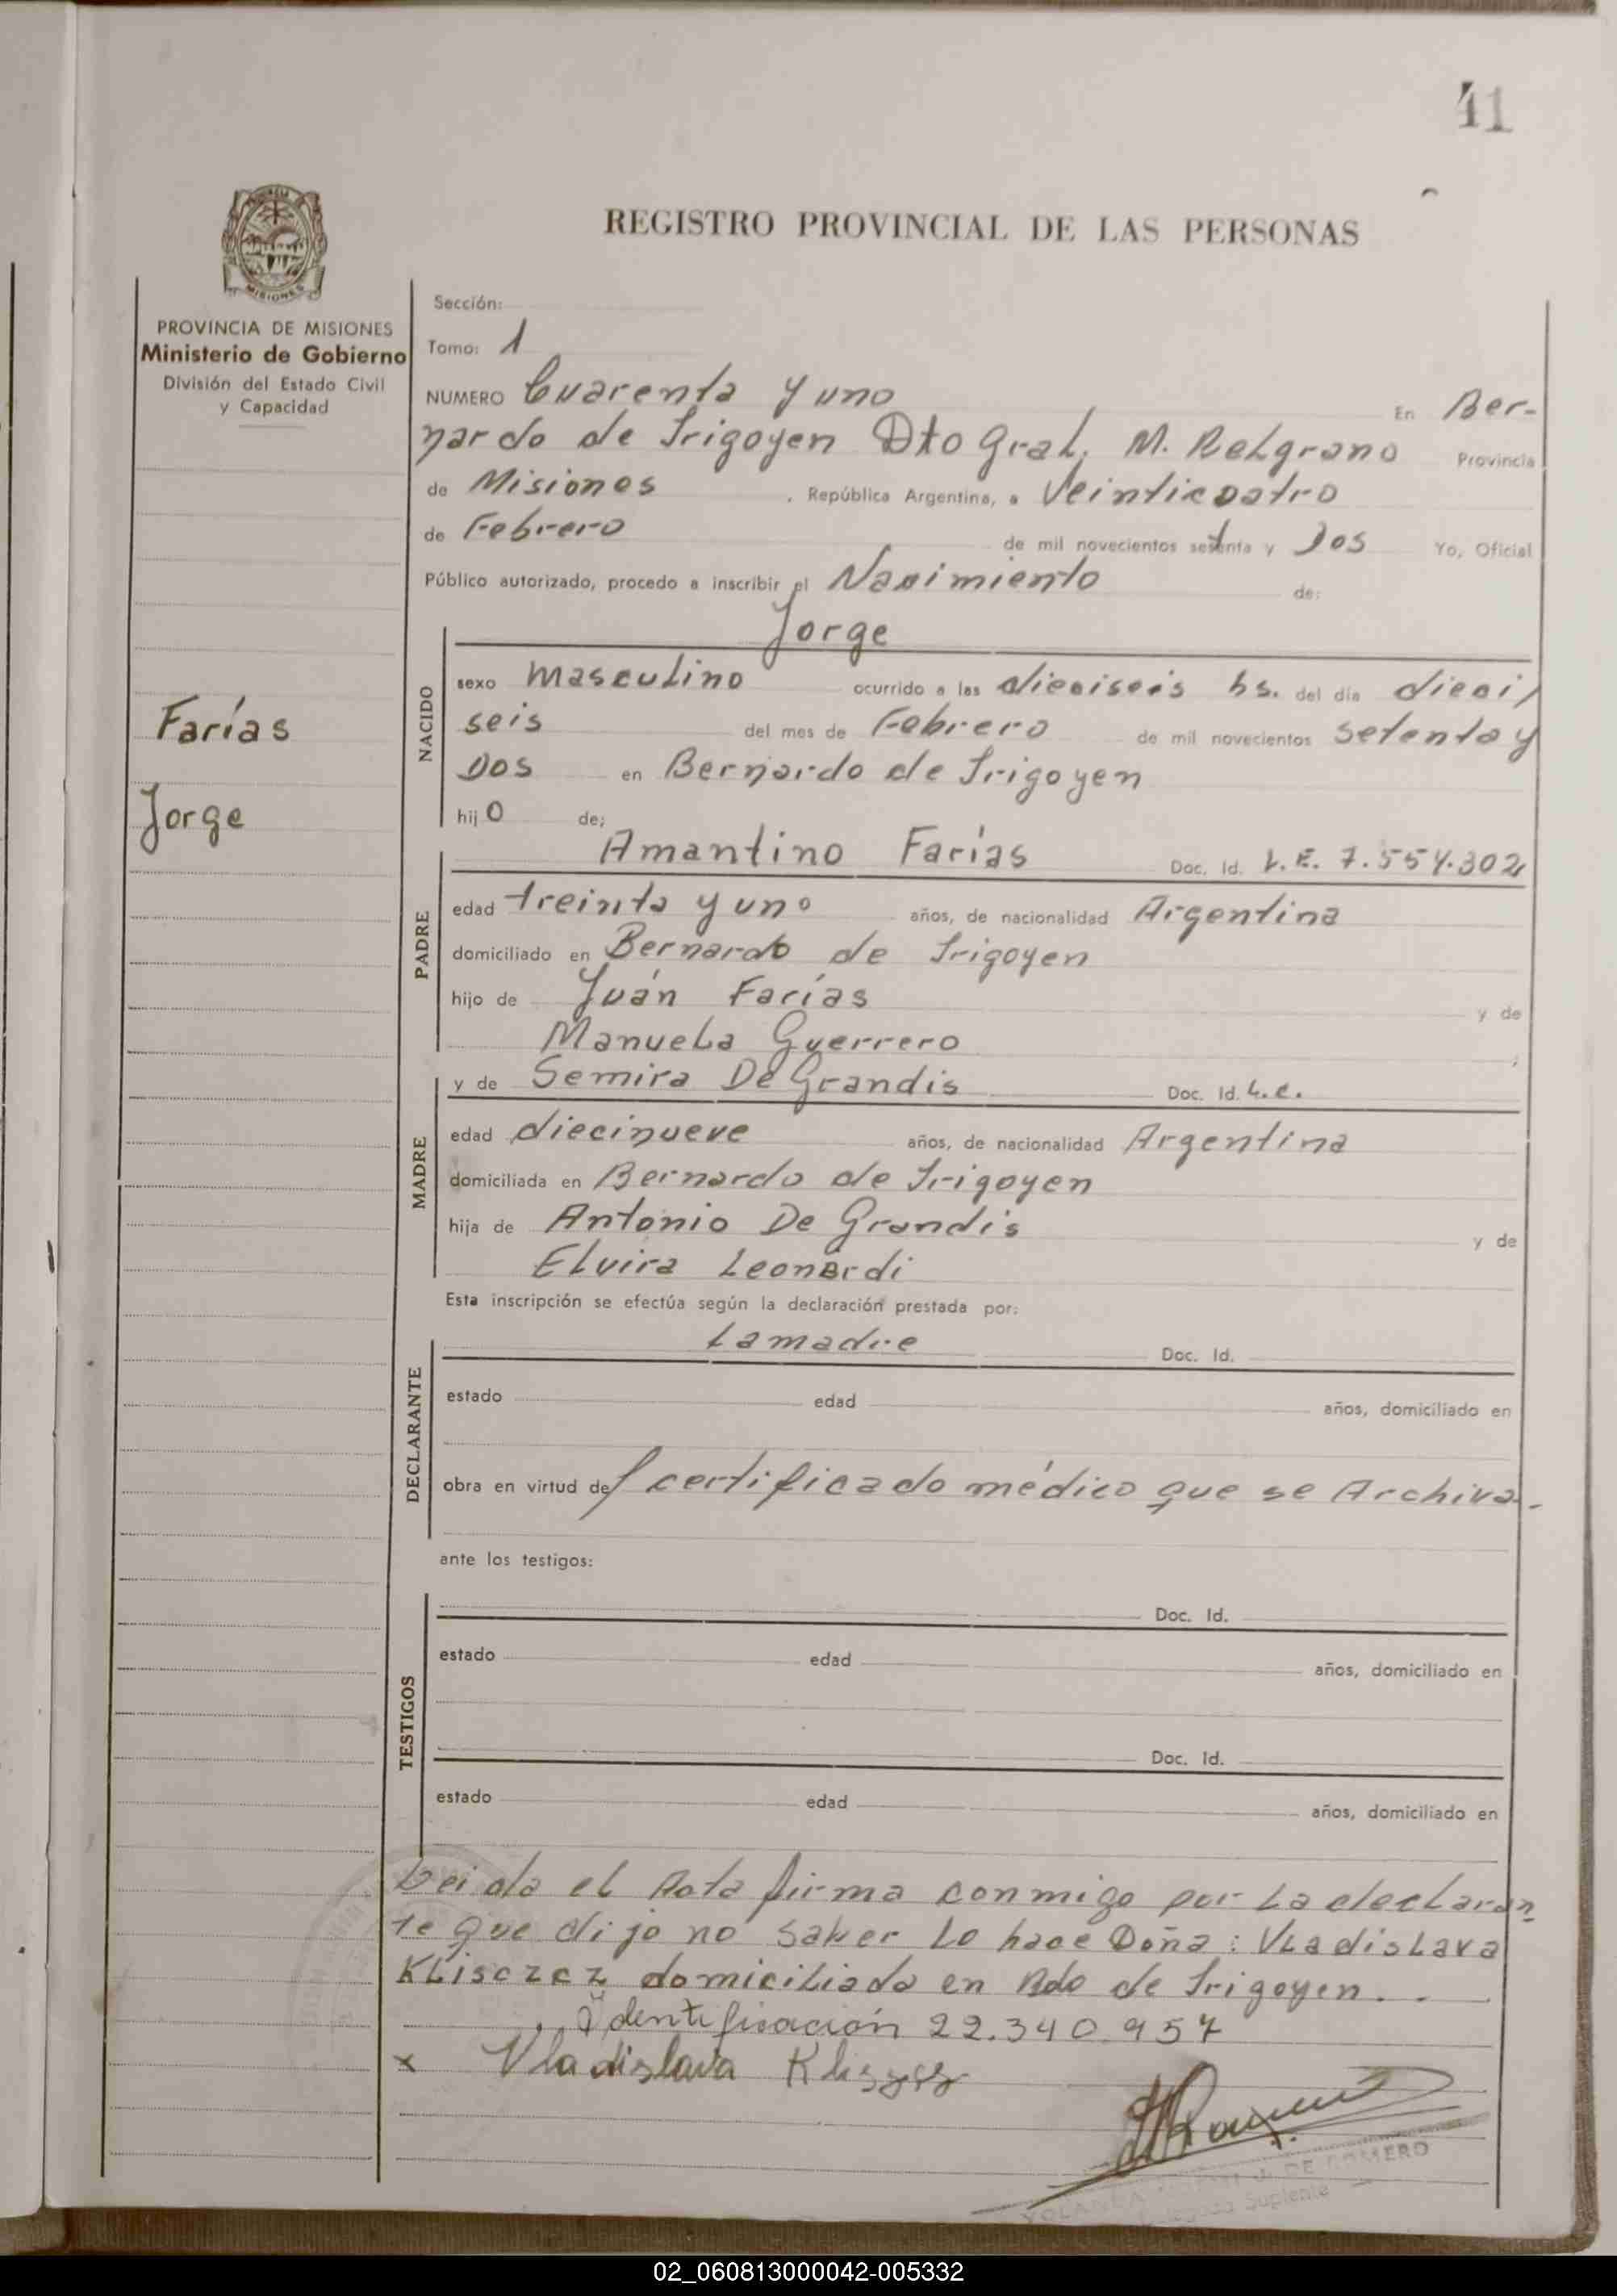 41
REGISTRO PROVINCIAL DE LAS PERSONAS
MISIONES
PROVINCIA DE MISIONES
Ministerio de Gobierno
División del Estado Civil
y Capacidad
Farías
Jorge
Sección:
Tomo: 1
NUMERO Cuarenta y uno En Ber-
nardo de Irigoyen Dto Gral. M. Belgrano Provincia
de Misiones , República Argentina, a Veinticuatro
de Febrero de mil novecientos setenta y Dos Yo, Oficial
Público autorizado, procedo a inscribir el Nacimiento de:
Jorge
NACIDO
sexo masculino ocurrido a las dieciseis hs. del día dieci/
seis del mes de Febrero de mil novecientos setenta y
Dos en Bernardo de Irigoyen
hijo de:
Amantino Farías Doc. Id. L.E. 7.554.302
PADRE
edad treinta y uno años, de nacionalidad Argentina
domiciliado en Bernardo de Irigoyen
hijo de Juán Farías y de
Manuela Guerrero ;
y de Semira De Grandis Doc. Id. L.C.
MADRE
edad diecinueve años, de nacionalidad Argentina
domiciliada en Bernardo de Irigoyen
hija de Antonio De Grandis y de
Elvira Leonardi
Esta inscripción se efectúa según la declaración prestada por:
La madre Doc. Id.
DECLARANTE
estado edad años, domiciliado en
obra en virtud de/ certificado médico que se Archiva.-
ante los testigos:
Doc. Id.
TESTIGOS
estado edad años, domiciliado en
Doc. Id.
estado edad años, domiciliado en
Leida el Acta firma conmigo por La declaran
te que dijo no saber Lo hace Doña: Vladislava
Klisczcz domiciliada en Bdo de Irigoyen. .-
Identificación 22.340.957
x Vladislava
DE ROMERO
YOLANDA
Suplente
02_060813000042-005332